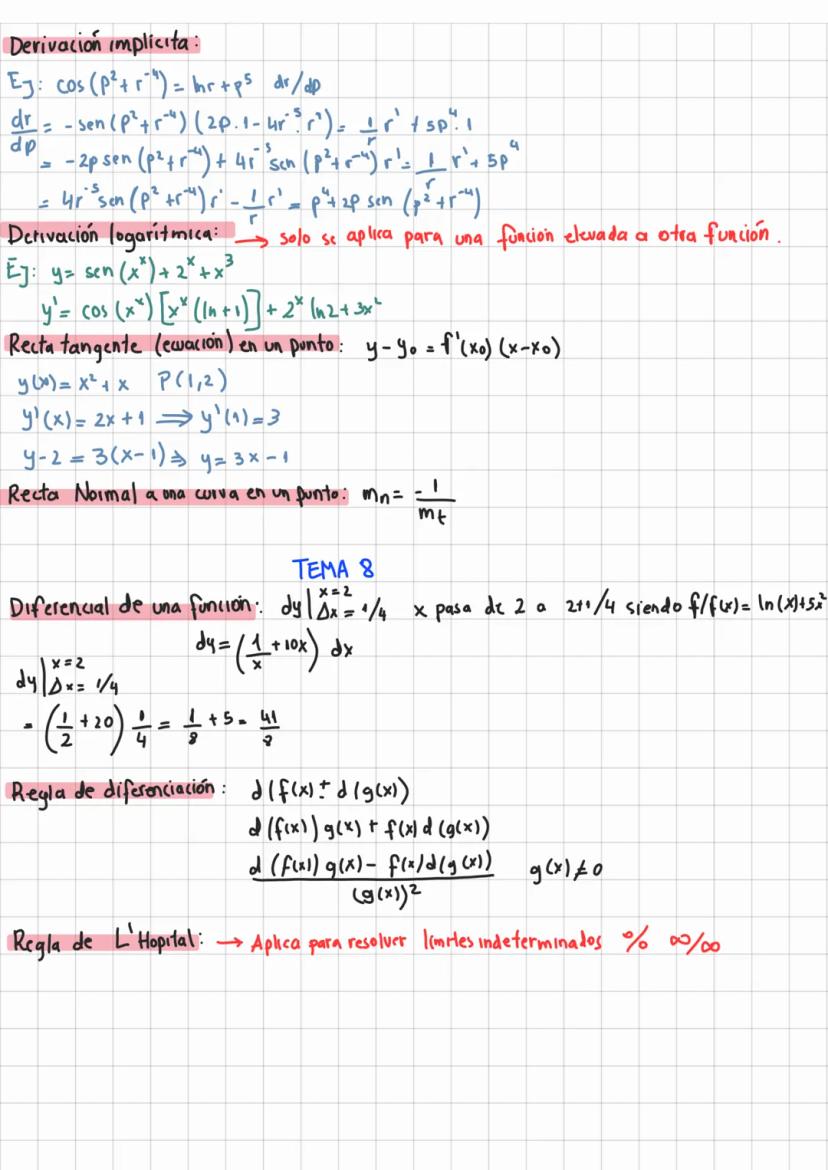 Derivación implícita:
Ej: cos(p²+r⁻⁴) = lnr + p⁵ dr/dp
dr/dp = -sen(p²+r⁻⁴)(2p.1-4r⁻⁵.r') = 1/r r' + 5p⁴.1
= -2p sen(p²+r⁻⁴) + 4r⁻⁵ sen(p²+r⁻⁴)r' = 1/r r' + 5p⁴
= 4r⁻⁵ sen(p²+r⁻⁴)r' - 1/r r' = p⁴+2p sen(p²+r⁻⁴)
Derivación logarítmica: → solo se aplica para una función elevada a otra función.
Ej: y= sen(xˣ)+2ˣ+x³
y'= cos(xˣ)[xˣ(ln+1)]+2ˣ ln2+3x²
Recta tangente (ecuación) en un punto: y-y₀ = f'(x₀)(x-x₀)
y(x)= x²+x P(1,2)
y'(x)= 2x+1 ⟹ y'(1)=3
y-2 = 3(x-1) ⇒ y= 3x-1
Recta Normal a una curva en un punto: mn= -1/mt
TEMA 8
Diferencial de una función: dy| x=2 Δx=1/4 x pasa de 2 a 2+1/4 siendo f/f(x)= ln(x)+5x²
dy=(1/x+10x) dx
dy| x=2 Δx=1/4
= (1/2+20) 1/4 = 1/8 + 5 = 41/8
Regla de diferenciación: d(f(x) ± d(g(x))
d(f(x)) g(x) + f(x) d(g(x))
d(f(x)) g(x) - f(x)d(g(x)) / (g(x))² g(x)≠0
Regla de L'Hopital: → Aplica para resolver límites indeterminados 0/0 ∞/∞